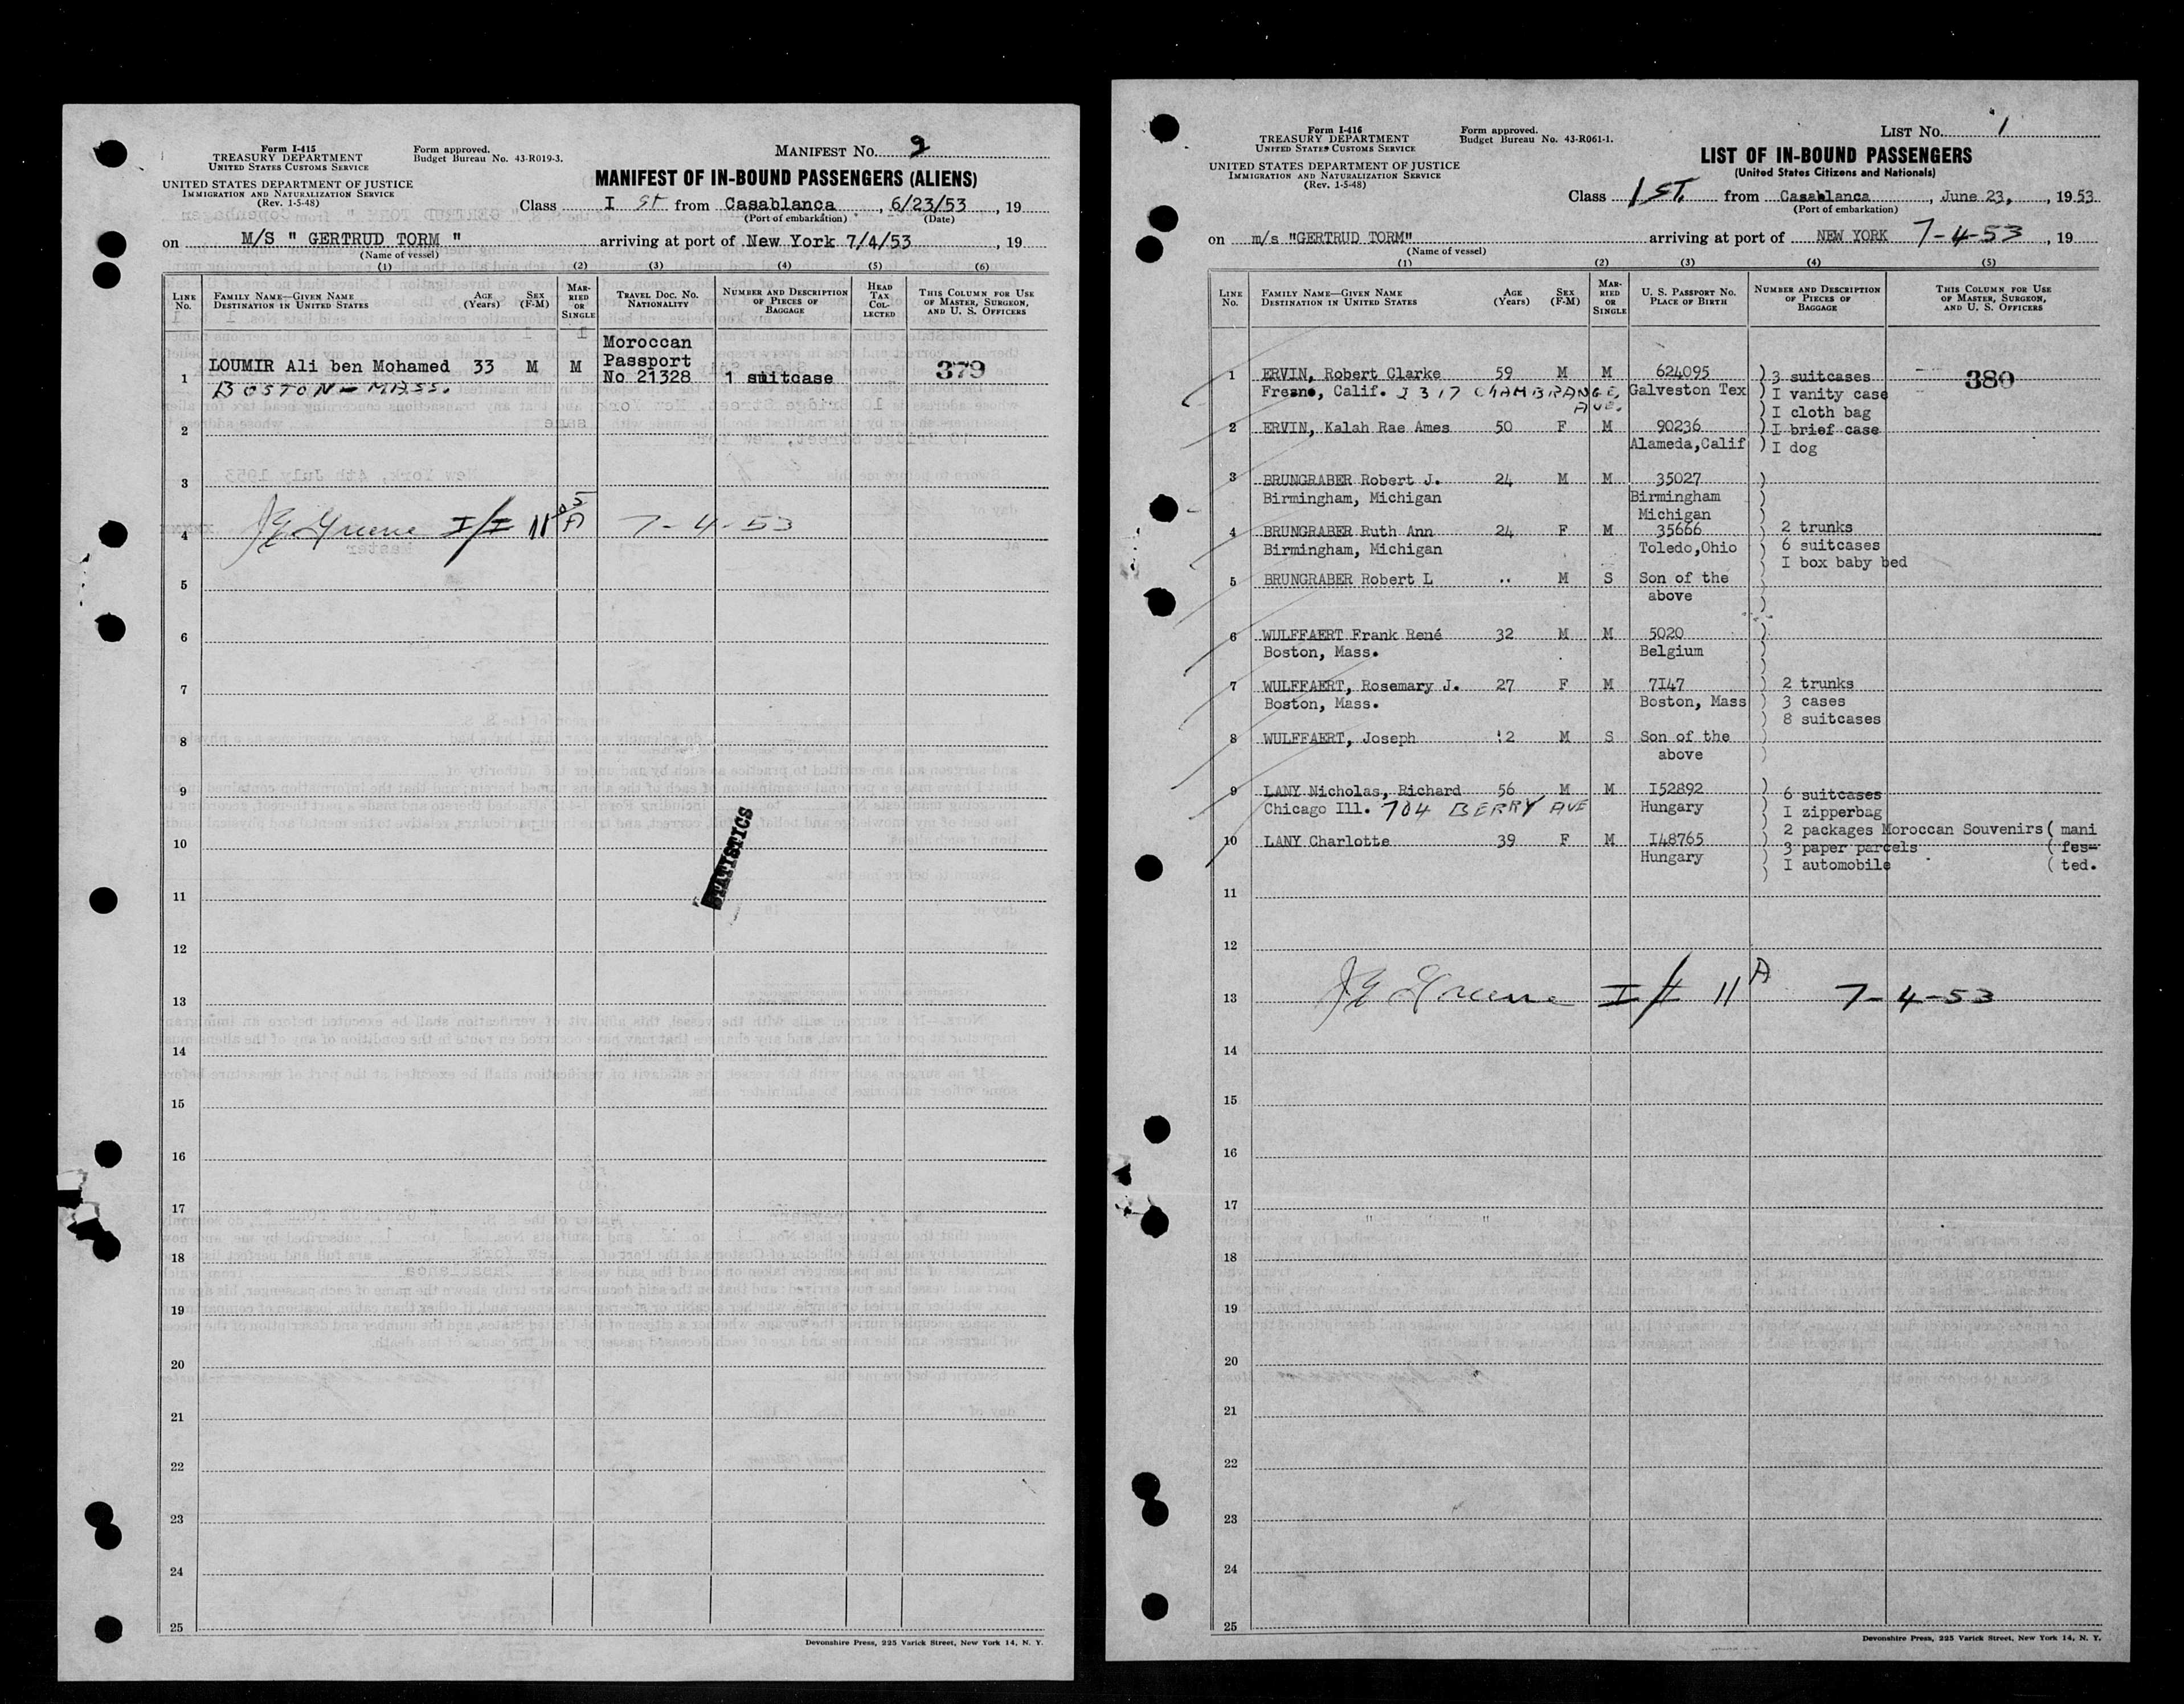 Form I-415
TREASURY DEPARTMENT
UNITED STATES CUSTOMS SERVICE
UNITED STATES DEPARTMENT OF JUSTICE
IMMIGRATION AND NATURALIZATION SERVICE
(Rev. 1-5-48)
Form approved.
Budget Bureau No. 43-R019-3.
MANIFEST No. 9
MANIFEST OF IN-BOUND PASSENGERS (ALIENS)
Class I st from Casablanca, 6/23/53, 19
(Port of embarkation) (Date)
on M/S " GERTRUD TORM " arriving at port of New York 7/4/53, 19
(Name of vessel)
(1) (2) (3) (4) (5) (6)
LINE No. FAMILY NAME—GIVEN NAME DESTINATION IN UNITED STATES AGE (Years) SEX (F-M) MARRIED OR SINGLE TRAVEL DOC. NO. NATIONALITY NUMBER AND DESCRIPTION OF PIECES OF BAGGAGE HEAD TAX COLLECTED THIS COLUMN FOR USE OF MASTER, SURGEON, AND U. S. OFFICERS
1 LOUMIR Ali ben Mohamed 33 M M Moroccan Passport No 21328 1 suitcase 379
BOSTON - MASS.
2
3
4 JE Greene I/I 11 05 A 7-4-53
5
6
7
8
9
10
STATISTICS
11
12
13
14
15
16
17
18
19
20
21
22
23
24
25
Devonshire Press, 225 Varick Street, New York 14, N. Y.
Form I-416
TREASURY DEPARTMENT
UNITED STATES CUSTOMS SERVICE
UNITED STATES DEPARTMENT OF JUSTICE
IMMIGRATION AND NATURALIZATION SERVICE
(Rev. 1-5-48)
Form approved.
Budget Bureau No. 43-R061-1.
LIST No. 1
LIST OF IN-BOUND PASSENGERS
(United States Citizens and Nationals)
Class 1 ST. from Casablanca, June 23, 1953
(Port of embarkation)
on m/s "GERTRUD TORM" arriving at port of NEW YORK 7-4-53, 19
(Name of vessel)
(1) (2) (3) (4) (5)
LINE No. FAMILY NAME—GIVEN NAME DESTINATION IN UNITED STATES AGE (Years) SEX (F-M) MARRIED OR SINGLE U. S. PASSPORT NO. PLACE OF BIRTH NUMBER AND DESCRIPTION OF PIECES OF BAGGAGE THIS COLUMN FOR USE OF MASTER, SURGEON, AND U. S. OFFICERS
1 ERVIN, Robert Clarke 59 M M 624095 ) 3 suitcases 380
Fresno, Calif. 2317 CHAMBRANGE AVE. Galveston Tex ) I vanity case
) I cloth bag
2 ERVIN, Kalah Rae Ames 50 F M 90236 ) I brief case
Alameda, Calif ) I dog
3 BRUNGRABER Robert J. 24 M M 35027 )
Birmingham, Michigan Birmingham Michigan )
4 BRUNGRABER Ruth Ann 24 F M 35666 ) 2 trunks
Birmingham, Michigan Toledo,Ohio ) 6 suitcases
) I box baby bed
5 BRUNGRABER Robert L .. M S Son of the
above )
6 WULFFAERT Frank René 32 M M 5020 )
Boston, Mass. Belgium )
7 WULFFAERT, Rosemary J. 27 F M 7I47 ) 2 trunks
Boston, Mass. Boston, Mass ) 3 cases
) 8 suitcases
8 WULFFAERT, Joseph 2 M S Son of the
above )
9 LANY Nicholas, Richard 56 M M I52892 ) 6 suitcases
Chicago Ill. 704 BERRY AVE Hungary ) I zipperbag
) 2 packages Moroccan Souvenirs ( mani
10 LANY Charlotte 39 F M I48765 ) 3 paper parcels ( fes-
Hungary ) I automobile ( ted.
11
12
13 JE Greene I/I 11 A 7-4-53
14
15
16
17
18
19
20
21
22
23
24
25
Devonshire Press, 225 Varick Street, New York 14, N. Y.